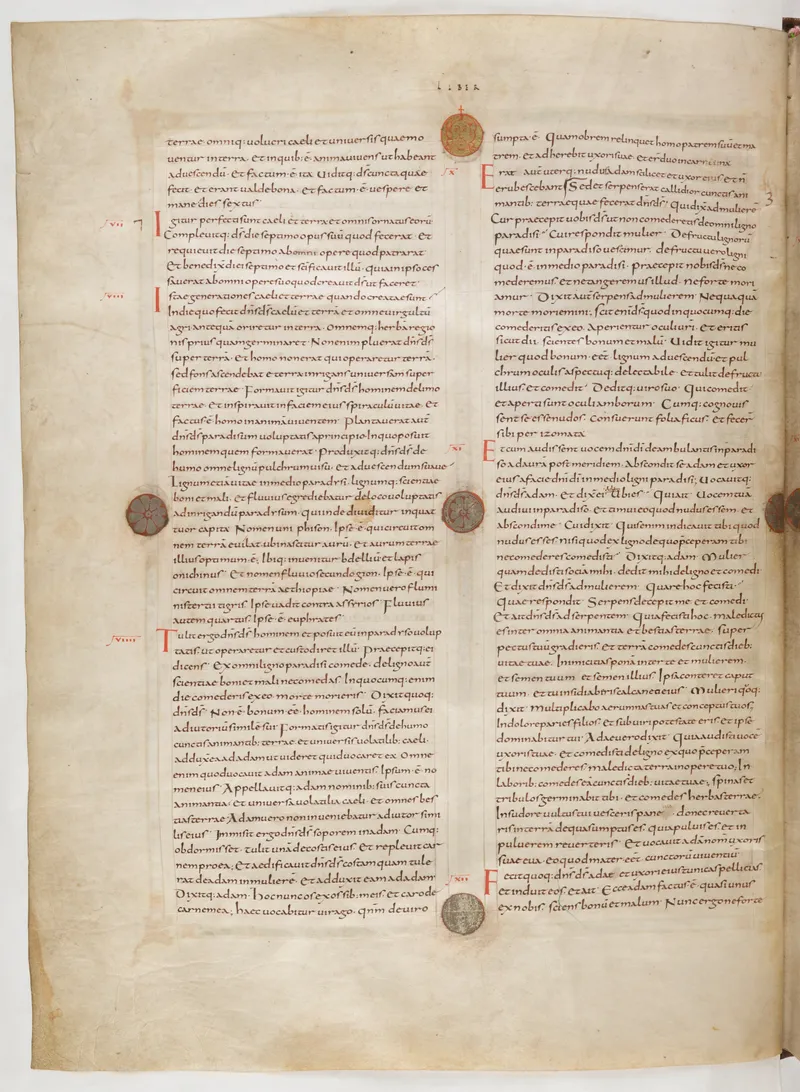 LIBER
terrae· omniq; uolucri caeli et uniuersis quae mo
uentur in terra· et in quib; ē anima uiuens ut habeant
ad uescendū· Et factum ē ita Uiditq; ds cuncta quae
fecit· et erant ualde bona· et factum ē uespere et
mane dies sextus·
Igitur perfecti sunt caeli et terra et omnis ornatus eorū
Compleuitq; ds die septimo opus suū quod fecerat· et
requieuit die septimo ab omni opere quod patrarat·
Et benedix die septimo et scificauit illū· quia in ipso ces
sauerat ab omni opere suo quod creauit ds ut faceret·
Istae generationes caeli et terrae quando creatae sunt
In die quo fecit dns ds caelū et terrā et omne uirgultū
agri antequā oriretur in terra· Omnemq; herbā regio
nis priusquam germinaret· Non enim pluerat dns ds
super terrā· et homo non erat qui operaretur terrā·
sed fons ascendebat e terra inrigans uniuersam super
ficiem terrae· Formauit igitur dns ds hominem de limo
terrae· et inspirauit in faciem eius spiraculū uitae· et
factus ē homo in animā uiuentem· Plantauerat aut
dns ds paradisum uoluptatis a principio· In quo posuit
hominem quem formauerat· Produxitq; dns ds de
humo omne lignū pulchrum uisu· et ad uescendum suaue
Lignum etiā uitae in medio paradysi· lignumq; scientiae
boni et mali· et fluuius egrediebatur de loco uoluptatis
ad inrigandū paradysum· qui inde diuiditur in quat
tuor capita· Nomen uni phison· Ipse ē qui circuit om
nem terrā euilat· ubi nascitur aurū· et aurum terrae
illius optimum ē· Ibiq; inuenitur bdellium et lapis
onichinus· Et nomen fluuio secundo gion· Ipse ē qui
circuit omnem terrā aethiopiae· Nomen uero flumi
nis tertii tigris· Ipse uadit contra assyrios· Fluuius
autem quartus· Ipse ē euphrates·
Tulit ergo dns ds hominem et posuit eū in paradyso uolup
tatis· ut operaretur et custodiret illū· praecepitq; ei
dicens· Ex omni ligno paradisi comede· de ligno aut
scientiae boni et mali ne comedas· In quocumq; enim
die comederis ex eo· morte morieris· Dixit quoq;
dns ds· Non ē bonum eē hominem solū· faciamus ei
adiutoriū simile sui· Formatis igitur dns ds de humo
cunctis animantib; terrae· et uniuersis uolatilib; caeli·
adduxit ea ad adam ut uideret quid uocaret ea· Omne
enim quod uocauit adam animae uiuentis· Ipsum ē no
men eius· Appellauitq; adam nominib; suis cuncta
animantia· et uniuersa uolatilia caeli· et omnes bes
tias terrae· Adam uero non inueniebatur adiutor simi
lis eius· Inmisit ergo dns ds soporem in adam· Cumq;
obdormisset· tulit unā de costis eius· et repleuit car
nem pro ea; et aedificauit dns ds costam quam tule
rat de adam in muliere· et adduxit eam ad adam·
Dixitq; adam· Hoc nunc os ex ossib; meis et caro de
carne mea; haec uocabitur uirago· qnm de uiro
sumpta ē· Quamobrem relinquet homo patrem suū et ma
trem· et adherebit uxori suae· et erunt duo in carne una
Erat aut uterq; nudus adam scilicet et uxor eius· et n
erubescebant Sed et serpens erat callidior cunctis ani
mantib; terrae quae fecerat dns ds· Qui dixit ad mulierē
Cur praecepit uobis ds ut non comederetis de omni ligno
paradisi· Cui respondit mulier· De fructu lignorū
quae sunt in paradiso uescimur· de fructu uero ligni
quod ē in medio paradisi· praecepit nobis ds ne co
mederemus et ne tangeremus illud· ne forte mori
amur· Dixit aut serpens ad mulierem· Nequaquā
morte moriemini; scit enim ds quod in quocumq; die
comederitis ex eo· aperientur oculi uri· Et eritis
sicut dii· scientes bonum et malū· Uidit igitur mu
lier quod bonum eēt lignum ad uescendū et pul
chrum oculis aspectuq; delectabile· et tulit de fructu
illius et comedit· Deditq; uiro suo· Qui comedit
et aperti sunt oculi amborum· Cumq; cognouis
sent se esse nudos· consuerunt folia ficus· et fecer
sibi perizomata
Et cum audissent uocem dni di deambulantis in paradi
so ad aurā post meridiem· Abscondit se adam et uxor
eius a facie dni di in medio ligni paradisi; Uocauitq;
dns ds adam· et dixit ei ubi es· Qui ait Uocem tuā
audiui in paradiso· et timui eo quod nudus essem· et
abscondi me· Cui dixit· Quis enim indicauit tibi quod
nudus esses· nisi quod ex ligno de quo pceperam tibi
ne comederes comedisti· Dixitq; adam· Mulier
quam dedisti sociā mihi· dedit mihi de ligno et comedi
Et dixit dns ds ad mulierem· Quare hoc fecisti·
Quae respondit· Serpens decepit me et comedi·
Et ait dns ds ad serpentem· Quia fecisti hoc· maledictus
es inter omnia animantia et bestias terrae· super
pectus tuū gradieris· et terrā comedes cunctis dieb;
uitae tuae· Inimicitias ponā inter te et mulierem·
et semen tuum· et semen illius· Ipsa conteret caput
tuum· et tu insidiaberis calcaneo eius· Mulieri qoq;
dixit· Multiplicabo aerumnas tuas et conceptus tuos·
In dolore paries filios· et sub uiri potestate eris· et ipse
dominabitur tui· Adae uero dixit· Quia audisti uocē
uxoris tuae· et comedisti de ligno ex quo pceperam
tibi ne comederes· maledicta terra in opere tuo; In
laborib; comedes eā cunctis dieb; uitae tuae; spinas et
tribulos germinabit tibi· et comedes herbas terrae·
In sudore uultus tui uesceris pane· donec reuerta
ris in terrā de qua sumptus es· quia puluis es· et in
puluerem reuerteris· Et uocauit adā nom uxoris
suae eua· eo quod mater eēt cunctorū uiuentiū
Fecit quoq; dns ds adae et uxori eius tunicas pellicias
et induit eos· et ait· Ecce adam factus ē quasi unus
ex nobis· sciens bonū et malum· Nunc ergo ne forte